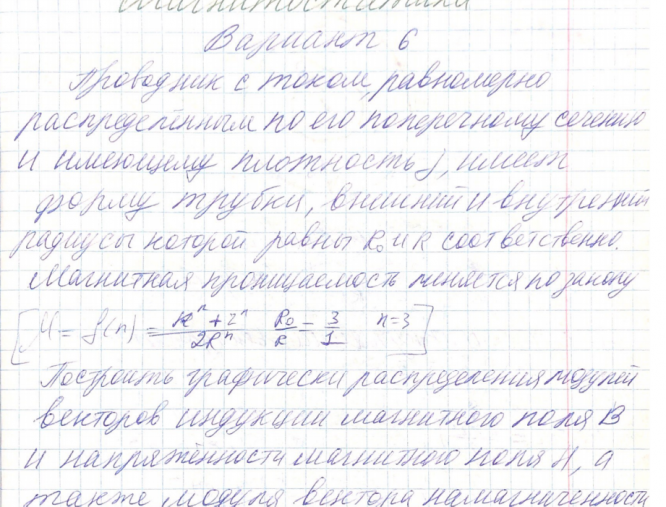 Магнитостатика
Вариант 6
Проводник с током, равномерно
распределённым по его поперечному сечению
и имеющему плотность j, имеет
форму трубки, внешний и внутренний
радиусы которой равны R₀ и R соответственно.
Магнитная проницаемость меняется по закону
[μ = f(r) = (Rⁿ + rⁿ)/(2Rⁿ) R₀/R = 3/1 n=3]
Построить графически распределения модулей
векторов индукции магнитного поля B
и напряжённости магнитного поля H, а
также модуля вектора намагниченности